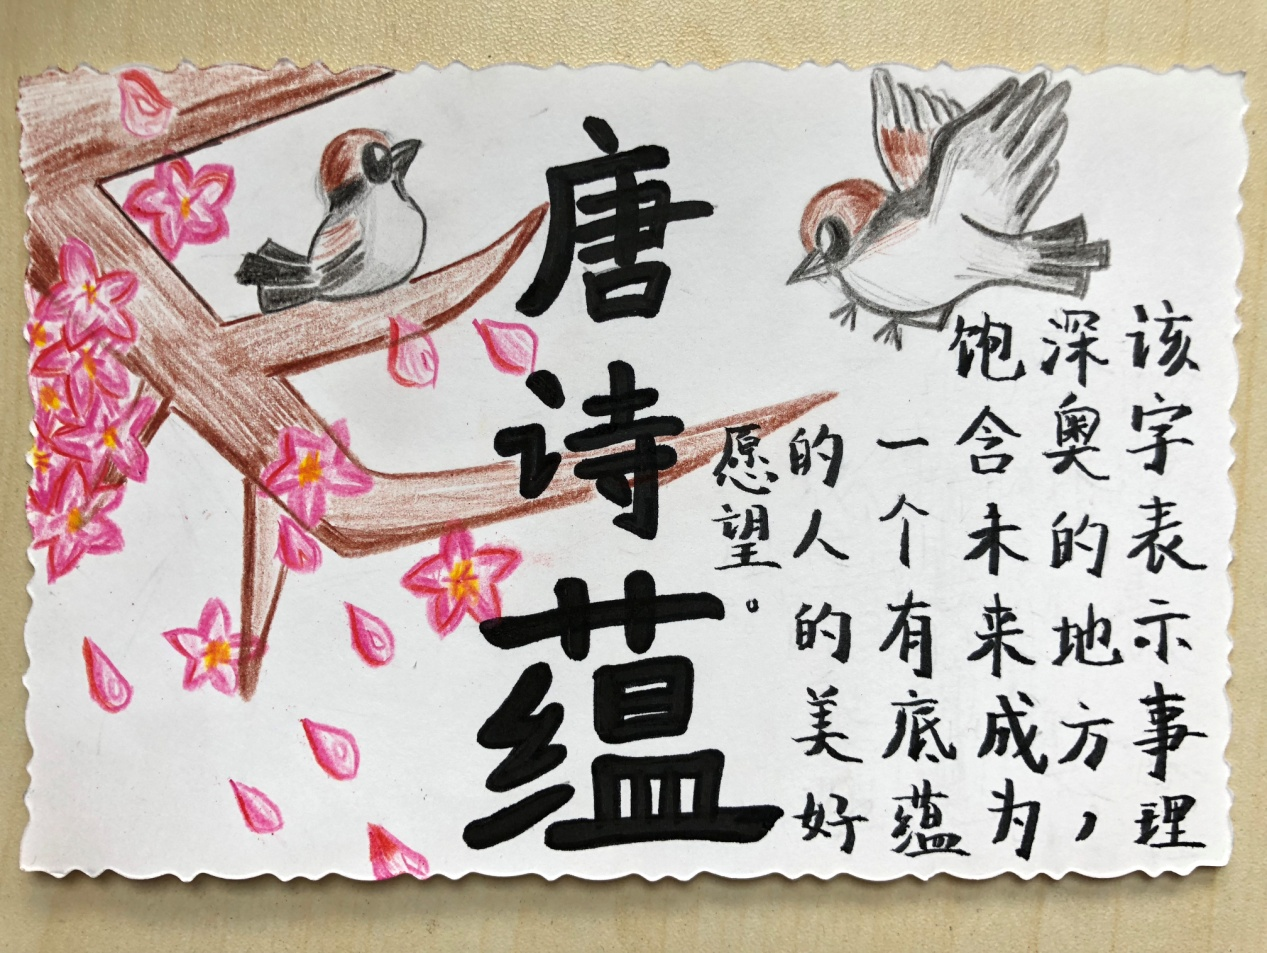 该字表示事理
深奥的地方，
饱含未来成为
一个有底蕴
的人的美好
愿望。
唐诗蕴